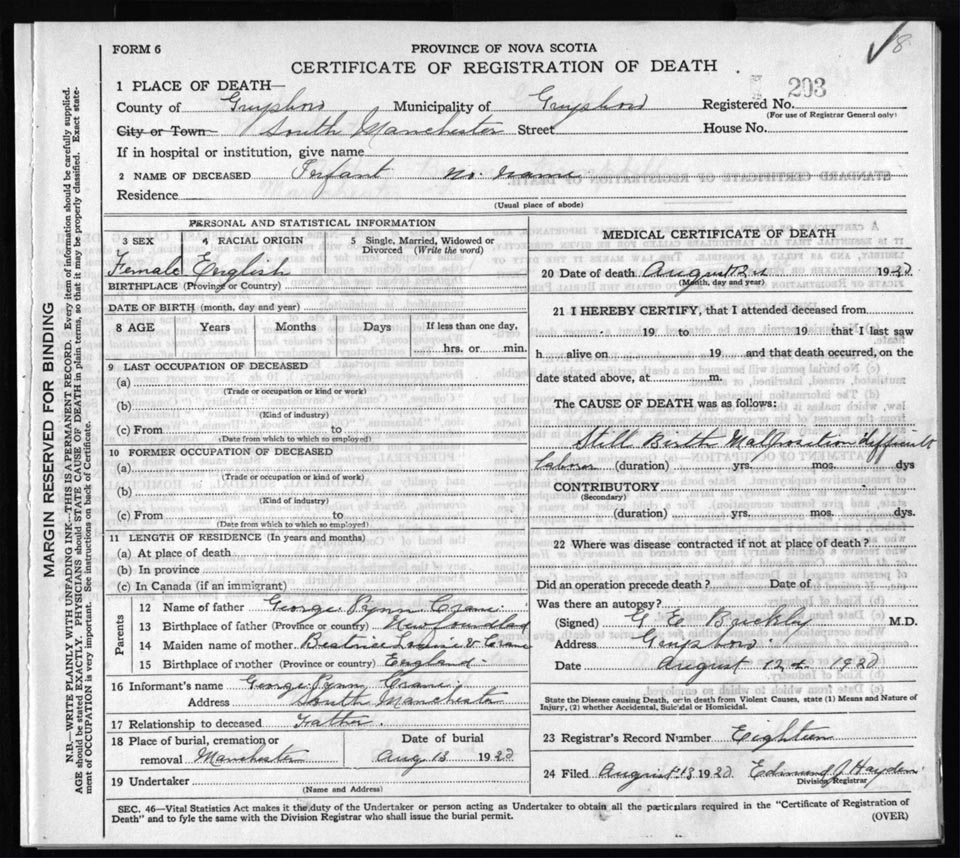 8
FORM 6
PROVINCE OF NOVA SCOTIA
CERTIFICATE OF REGISTRATION OF DEATH
203
1 PLACE OF DEATH—
County of Guysboro Municipality of Guysboro Registered No.
(For use of Registrar General only)
City or Town South Manchester Street House No.
If in hospital or institution, give name
2 NAME OF DECEASED Infant no. name
Residence
(Usual place of abode)
PERSONAL AND STATISTICAL INFORMATION
3 SEX 4 RACIAL ORIGIN 5 Single, Married, Widowed or Divorced (Write the word)
Female English
BIRTHPLACE (Province or Country)
DATE OF BIRTH (month, day and year)
8 AGE Years Months Days If less than one day,
hrs. or min.
9 LAST OCCUPATION OF DECEASED
(a)
(Trade or occupation or kind or work)
(b)
(Kind of industry)
(c) From to
(Date from which to which so employed)
10 FORMER OCCUPATION OF DECEASED
(a)
(Trade or occupation or work of kind)
(b)
(Kind of industry)
(c) From to
(Date from which to which so employed)
11 LENGTH OF RESIDENCE (In years and months)
(a) At place of death
(b) In province
(c) In Canada (if an immigrant)
Parents
12 Name of father George Crane
13 Birthplace of father (Province or country) Newfoundland
14 Maiden name of mother Beatrice Crane
15 Birthplace of mother (Province or country) England
16 Informant's name George Crane
Address South Manchester
17 Relationship to deceased Father.
18 Place of burial, cremation or removal Manchester
Date of burial
Aug 13 1920
19 Undertaker
(Name and Address)
MEDICAL CERTIFICATE OF DEATH
20 Date of death August 1920
(Month, day and year)
21 I HEREBY CERTIFY, that I attended deceased from
19 to 19 that I last saw
h alive on 19 and that death occurred, on the
date stated above, at m.
The CAUSE OF DEATH was as follows:
Still Birth Malposition difficult
labour (duration) yrs. mos. dys
CONTRIBUTORY
(Secondary)
(duration) yrs. mos. dys.
22 Where was disease contracted if not at place of death?
Did an operation precede death? Date of
Was there an autopsy?
(Signed) G E Buckley M.D.
Address Guysboro
Date August 12 1920
State the Disease causing Death, or in death from Violent Causes, state (1) Means and Nature of
Injury, (2) whether Accidental, Suicidal or Homicidal.
23 Registrar's Record Number Eighteen
24 Filed August 13 1920 Edmund J Hayden
Division Registrar
SEC. 46—Vital Statistics Act makes it the duty of the Undertaker or person acting as Undertaker to obtain all the particulars required in the "Certificate of Registration of
Death" and to fyle the same with the Division Registrar who shall issue the burial permit. (OVER)
MARGIN RESERVED FOR BINDING
N.B.—WRITE PLAINLY WITH UNFADING INK—THIS IS A PERMANENT RECORD. Every item of information should be carefully supplied.
AGE should be stated EXACTLY. PHYSICIANS should STATE CAUSE OF DEATH in plain terms, so that it may be properly classified. Exact state-
ment of OCCUPATION is very important. See instructions on back of Certificate.